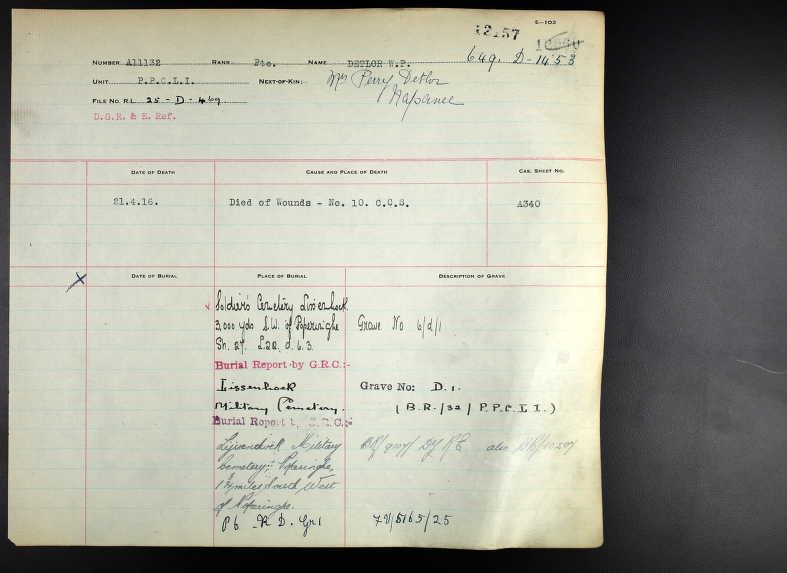 E-103
12157
649. D-1453
NUMBER A11132 RANK Pte. NAME DETLOR W.P.
UNIT P.P.C.L.I. NEXT-OF-KIN:- Mrs Perry Detlor
Napanee
FILE NO. R.L. 25-D-469
D.G.R. & E. Ref.
DATE OF DEATH CAUSE AND PLACE OF DEATH CAS. SHEET NO.
21.4.16. Died of Wounds - No. 10. C.C.S. A340
DATE OF BURIAL PLACE OF BURIAL DESCRIPTION OF GRAVE
X
Soldier's Cemetery Lissenhoek
3,000 yds S.W. of Poperinghe Grave No 6/d/1
Sh. 27. L22. d. 6.3.
Burial Report by G.R.C.:-
Lissenhoek Grave No: D.1.
Military Cemetery. (B.R./32/P.P.C.L.I.)
Burial Report by G.R.C.:-
Lijssenthoek Military
Cemetery: Poperinghe,
1½ miles South West
of Poperinghe.
P6 R D. Gr1 7V/5165/25